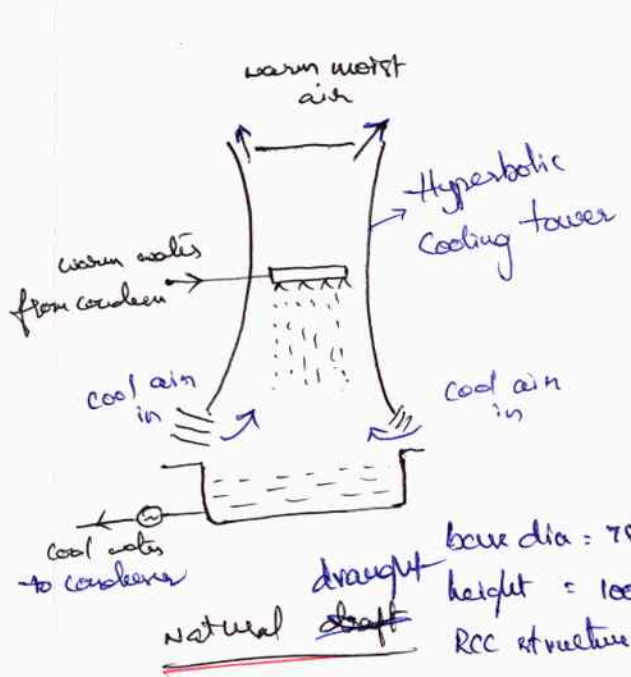 warm moist
air
Hyperbolic
Cooling tower
warm water
from conden
cool air
in
cool air
in
cool water
to condenser
draught
Natural draft
base dia = 75
height = 100
RCC structure